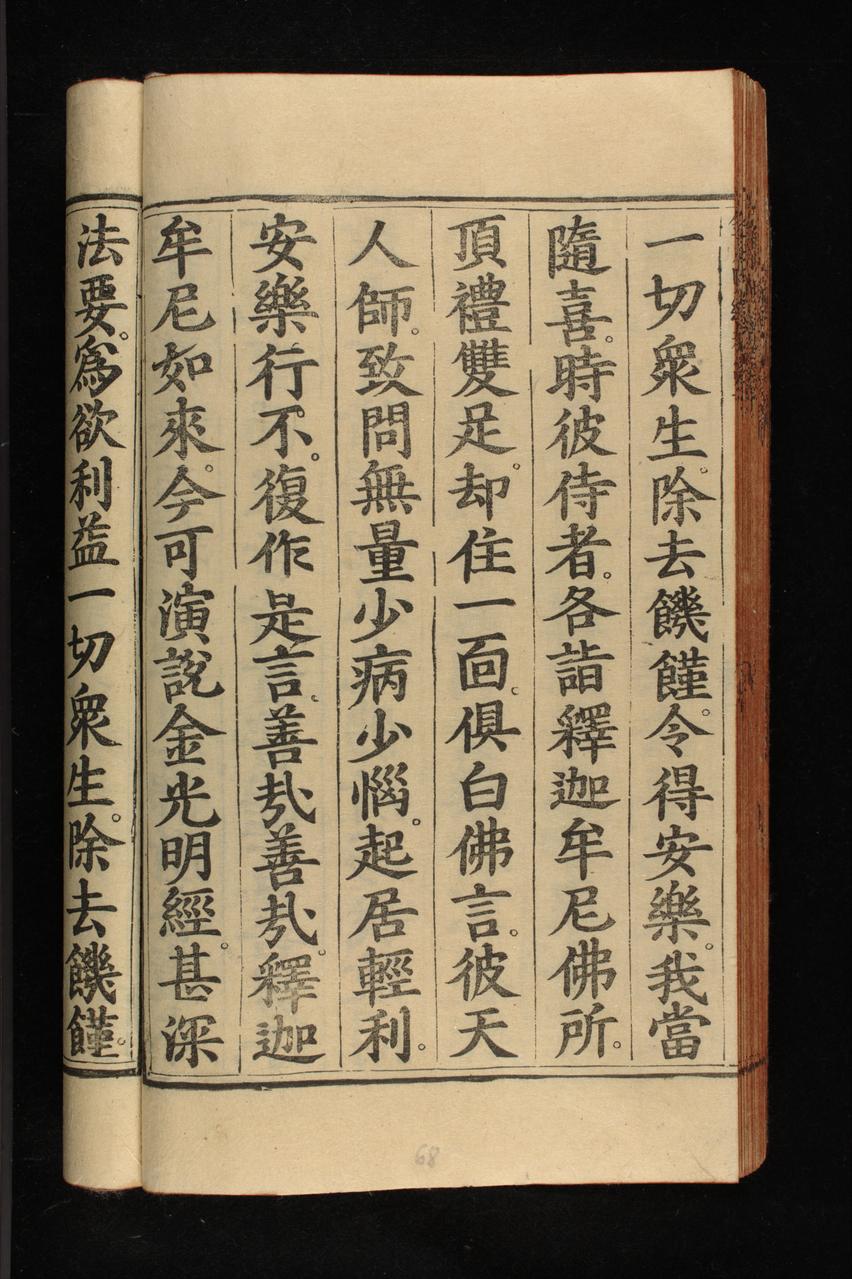 一切衆生。除去饑饉。令得安樂。我當
隨喜。時彼侍者。各詣釋迦牟尼佛所。
頂禮雙足。却住一面。俱白佛言。彼天
人師。致問無量少病少惱。起居輕利。
安樂行不。復作是言。善㢤善㢤。釋迦
牟尼如來。今可演說金光明經。甚深
法要。爲欲利益一切衆生。除去饑饉。
68